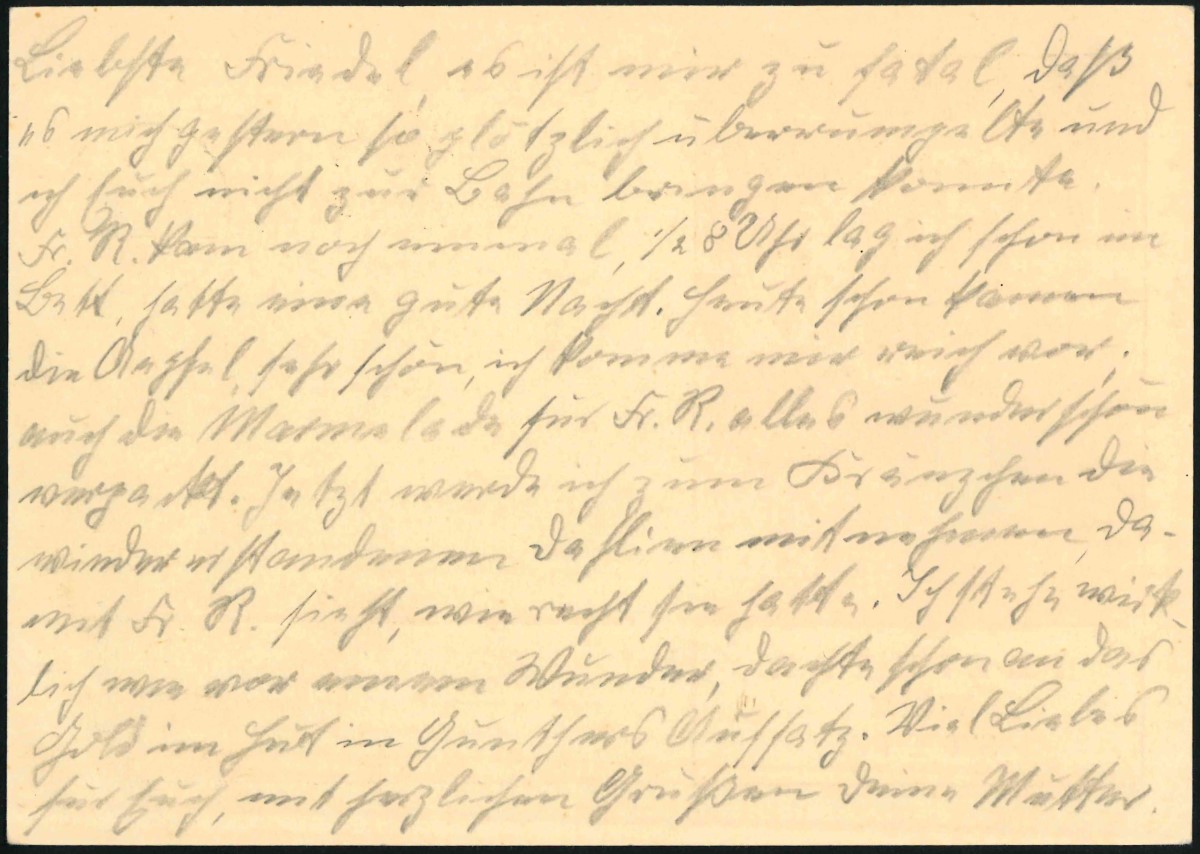 Liebste Friedel, es ist mir zu fatal, daß
es mich gestern so plötzlich überrumpelte und
ich Euch nicht zur Bahn bringen konnte.
Fr. R. kam noch einmal, 1/2 8 Uhr lag ich schon im
Bett, hatte eine gute Nacht. Heute schon kamen
die Aepfel, sehr schön, ich komme mir reich vor,
auch die Marmelade für Fr. R. alles wunderschön
verpackt. Jetzt werde ich zum Kränzchen die
wiedererstandenen Dahlien mitnehmen, da-
mit Fr. R. sieht, wie recht sie hatte. Ich stehe wirk-
lich wie vor einem Wunder, dachte schon an das
Gold im Hut in Gunthers Aufsatz. Viel Liebes
für Euch, mit herzlichen Grüßen Deine Mutter.